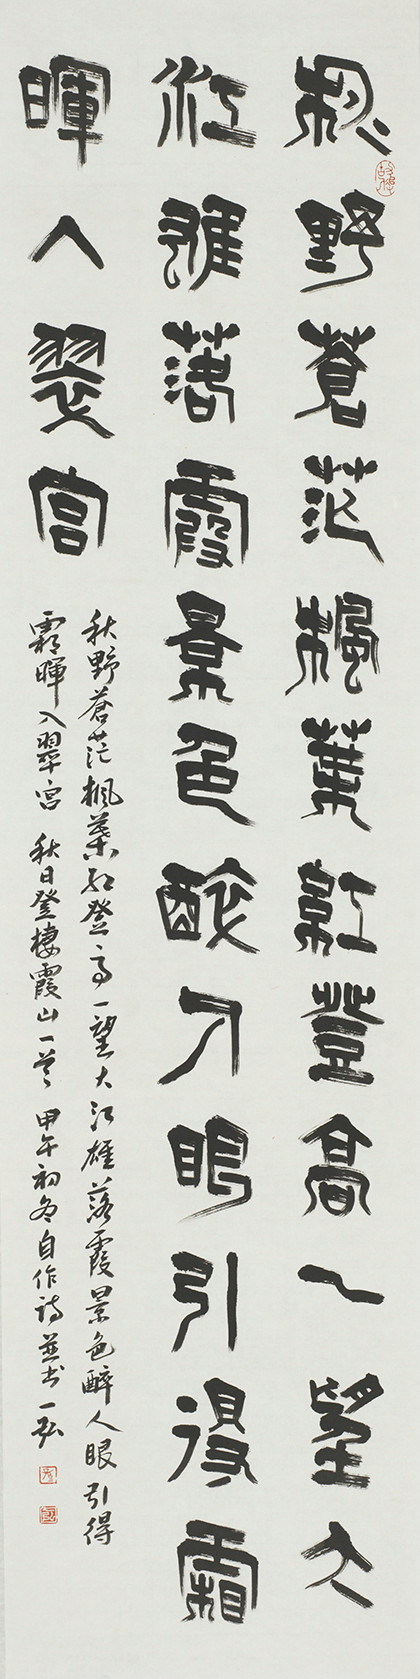 秋野蒼茫楓葉紅登高一望大
江雄落霞景色醉人眼引得霜
暉入翠宮
秋野蒼茫楓葉紅登高一望大江雄落霞景色醉人眼引得
霜暉入翠宮 秋日登棲霞山一首 甲午初冬自作詩並书一弘